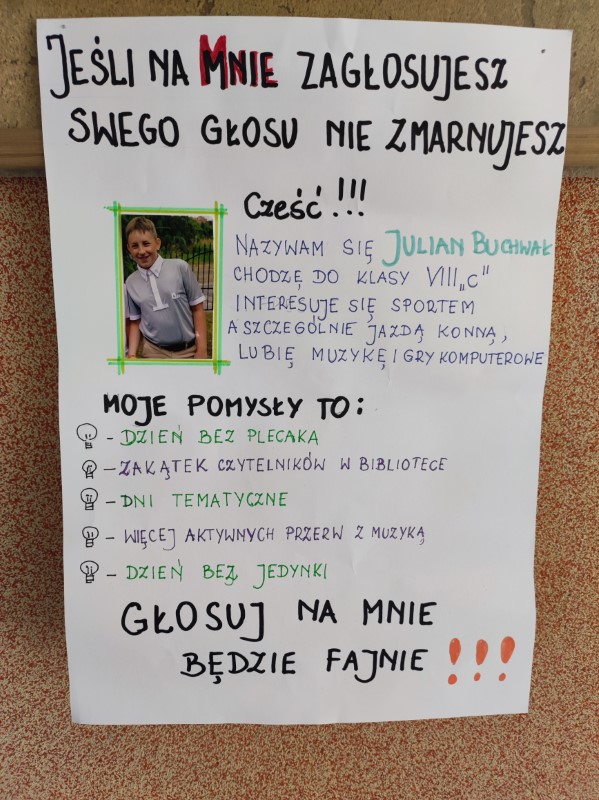 JEŚLI NA MNIE ZAGŁOSUJESZ
SWEGO GŁOSU NIE ZMARNUJESZ
CZEŚĆ!!!
NAZYWAM SIĘ JULIAN BUCHWAŁ
CHODZĘ DO KLASY VIII „C"
INTERESUJE SIĘ SPORTEM
A SZCZEGÓLNIE JAZDĄ KONNĄ,
LUBIĘ MUZYKĘ I GRY KOMPUTEROWE
MOJE POMYSŁY TO:
- DZIEŃ BEZ PLECAKA
- ZAKĄTEK CZYTELNIKÓW W BIBLIOTECE
- DNI TEMATYCZNE
- WIĘCEJ AKTYWNYCH PRZERW Z MUZYKĄ
- DZIEŃ BEZ JEDYNKI
GŁOSUJ NA MNIE
BĘDZIE FAJNIE !!!